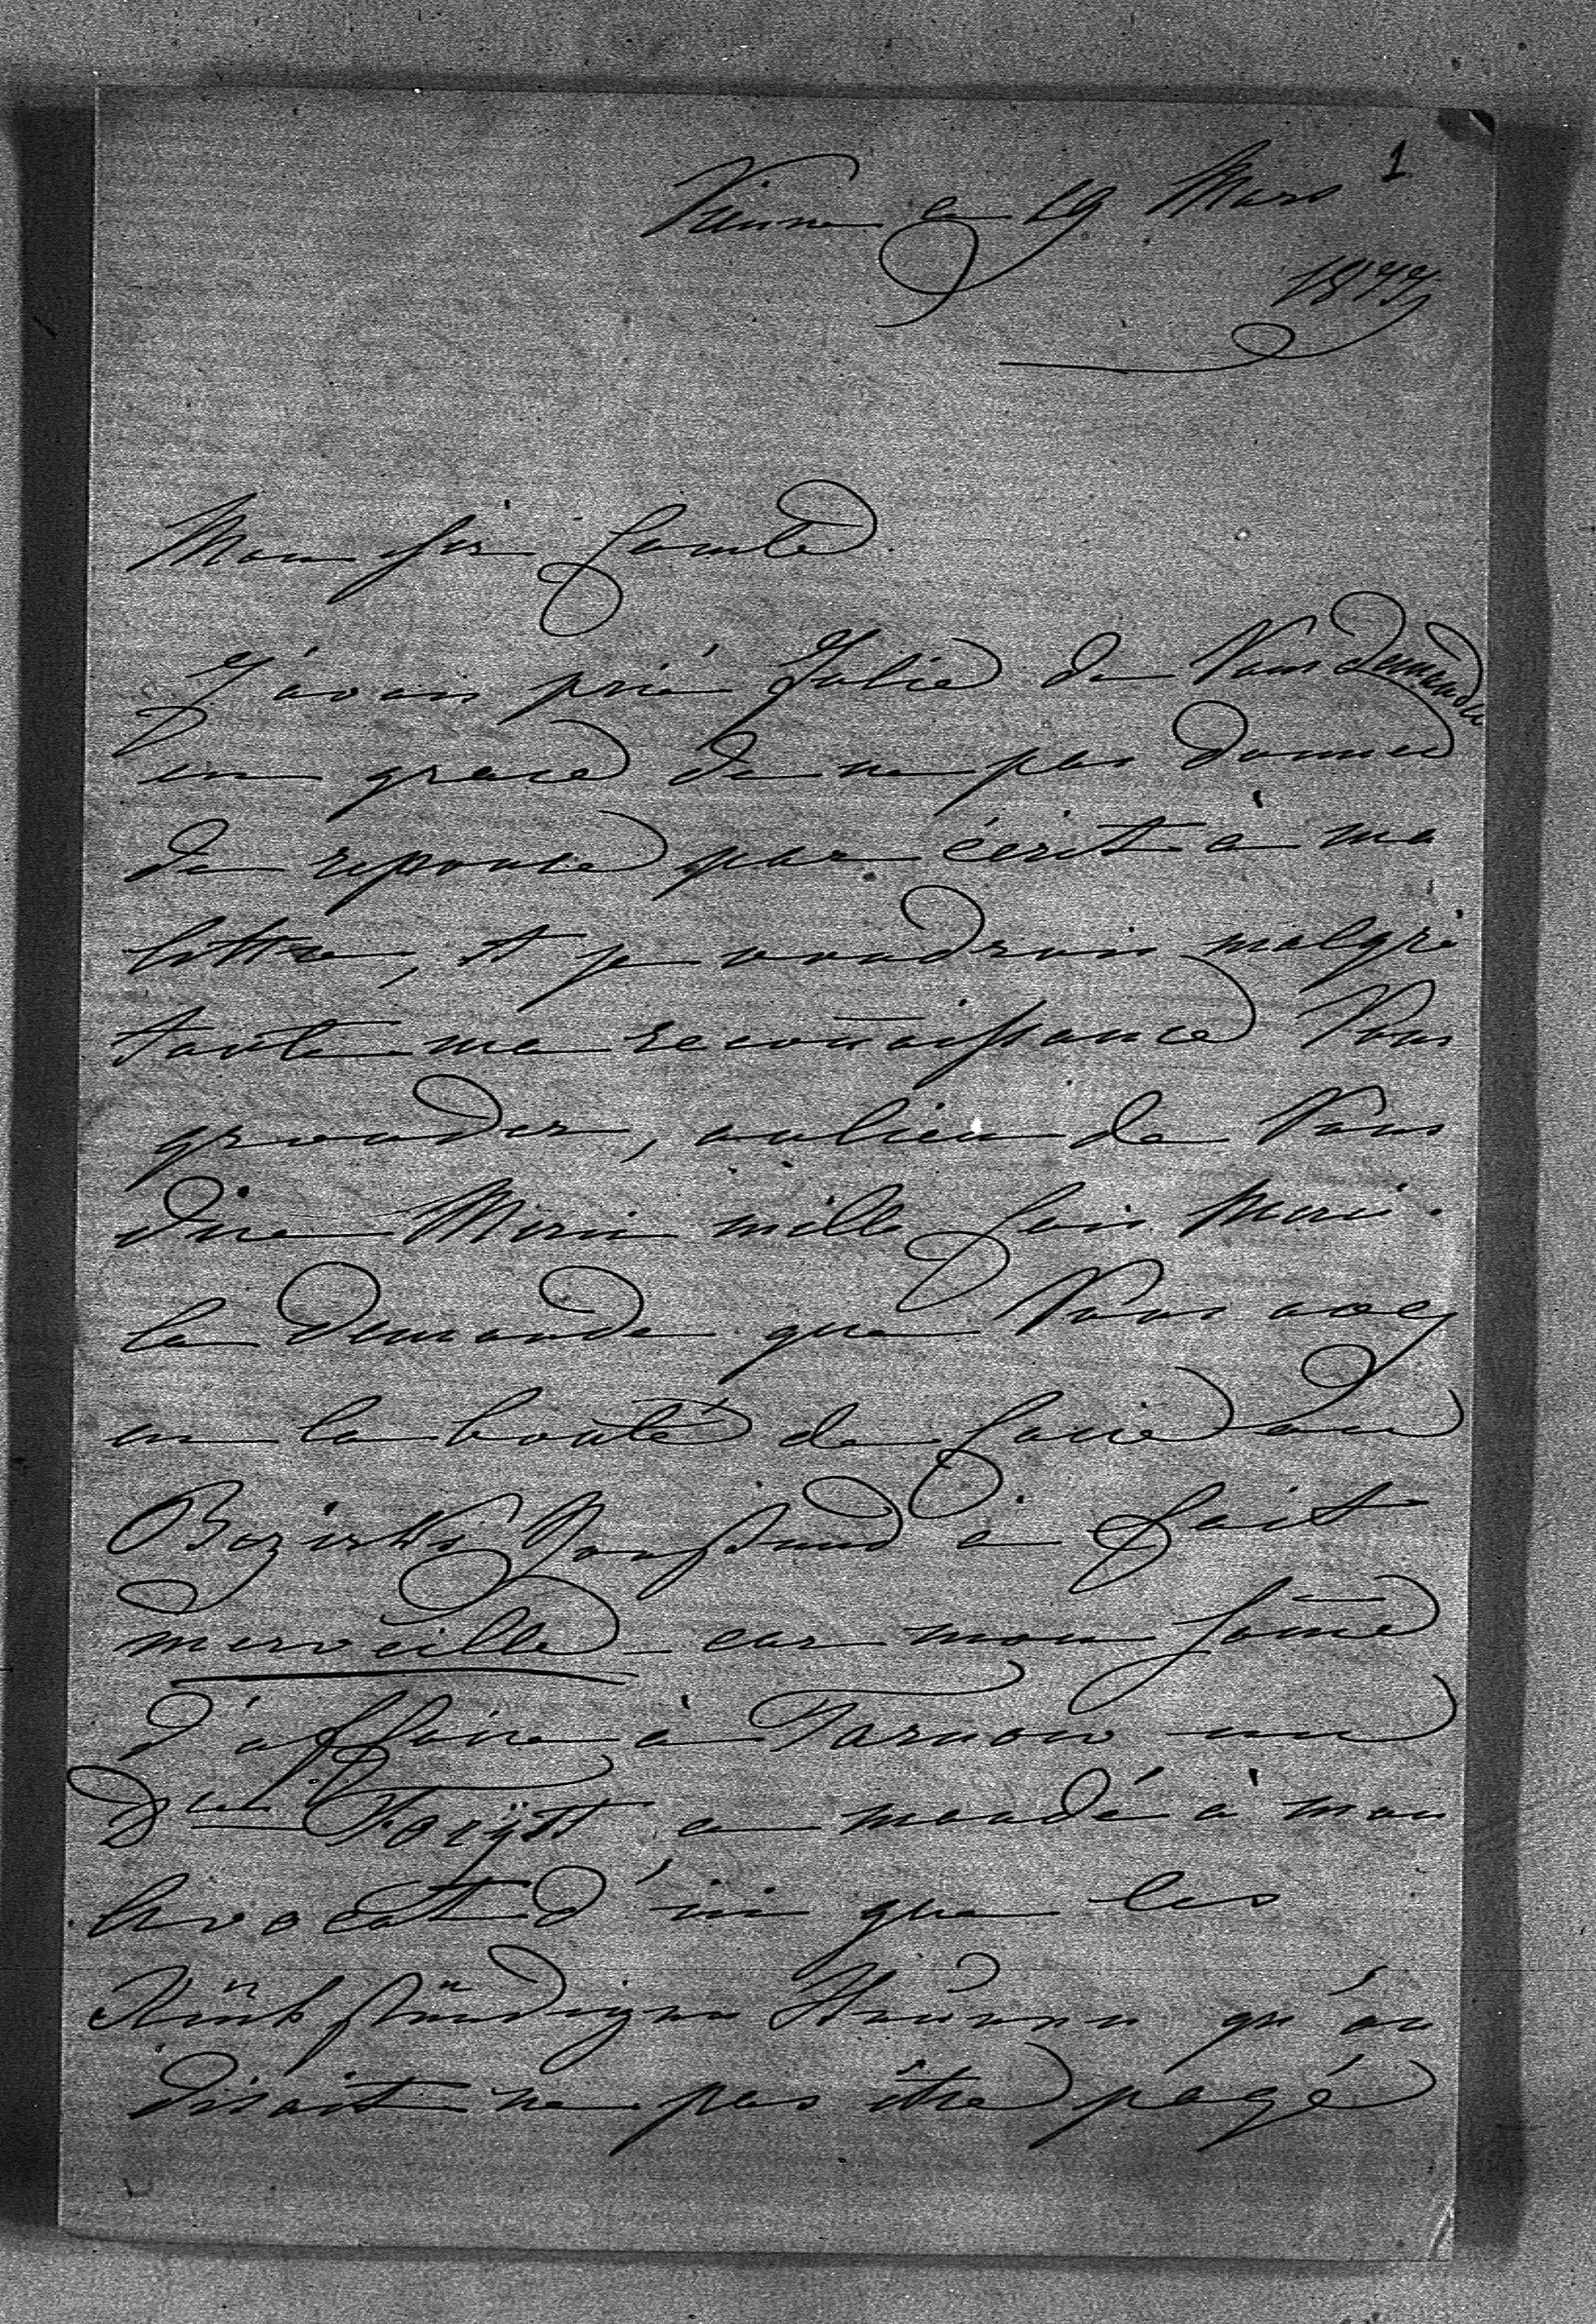 1
Vienne ce 19 Mars
1877
Mon cher Comte
J'avais prié Julie de Vous demander
en grace de ne pas donner
de reponse par écrit à ma
lettre, et je voudrais malgré
toute ma reconnaissance Vous
gronder, aulieu de Vous
dire Merci mille fois Merci.
la demande que Vous avez
eu la bonté de faire au
Bezirks à fait
merveille car mon home
d'affaire à Tarnow un
a mandé à mon
Avocat d'ici que les
Rückständigen Steuern qu'on
disait ne pas être payé